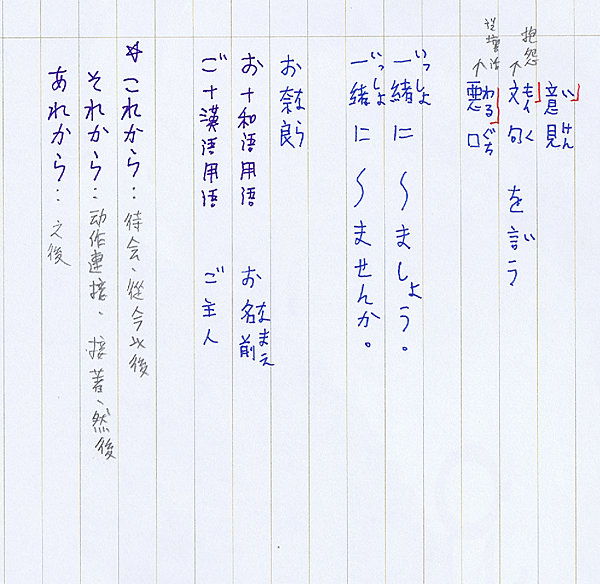 意見
文句 を言う
悪口
いけん
もんく
わるぐち
抱怨
説壞話
一緒に 〜ましょう。
いっしょ
一緒に 〜ませんか。
いっしょ
お奈良
お+和语用语 お名前
なまえ
ご+漢语用语 ご主人
☆これから：待会、從今以後
それから：动作連接、接著、然後
あれから：之後